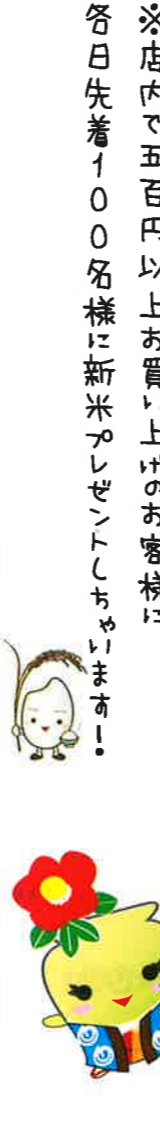 ※店内で五百円以上お買い上げのお客様に
各日先着100名様に新米プレゼントしちゃいます!